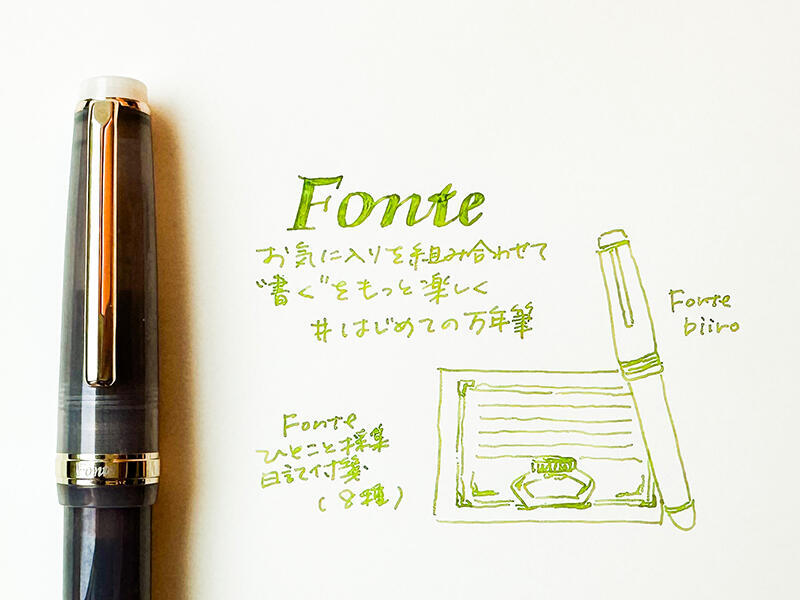 Fonte
お気に入りを組み合わせて
"書く"をもっと楽しく
#はじめての万年筆
Fonte
biiro
Fonte
ひとこと採集
日記付箋
(8種)
Fonte